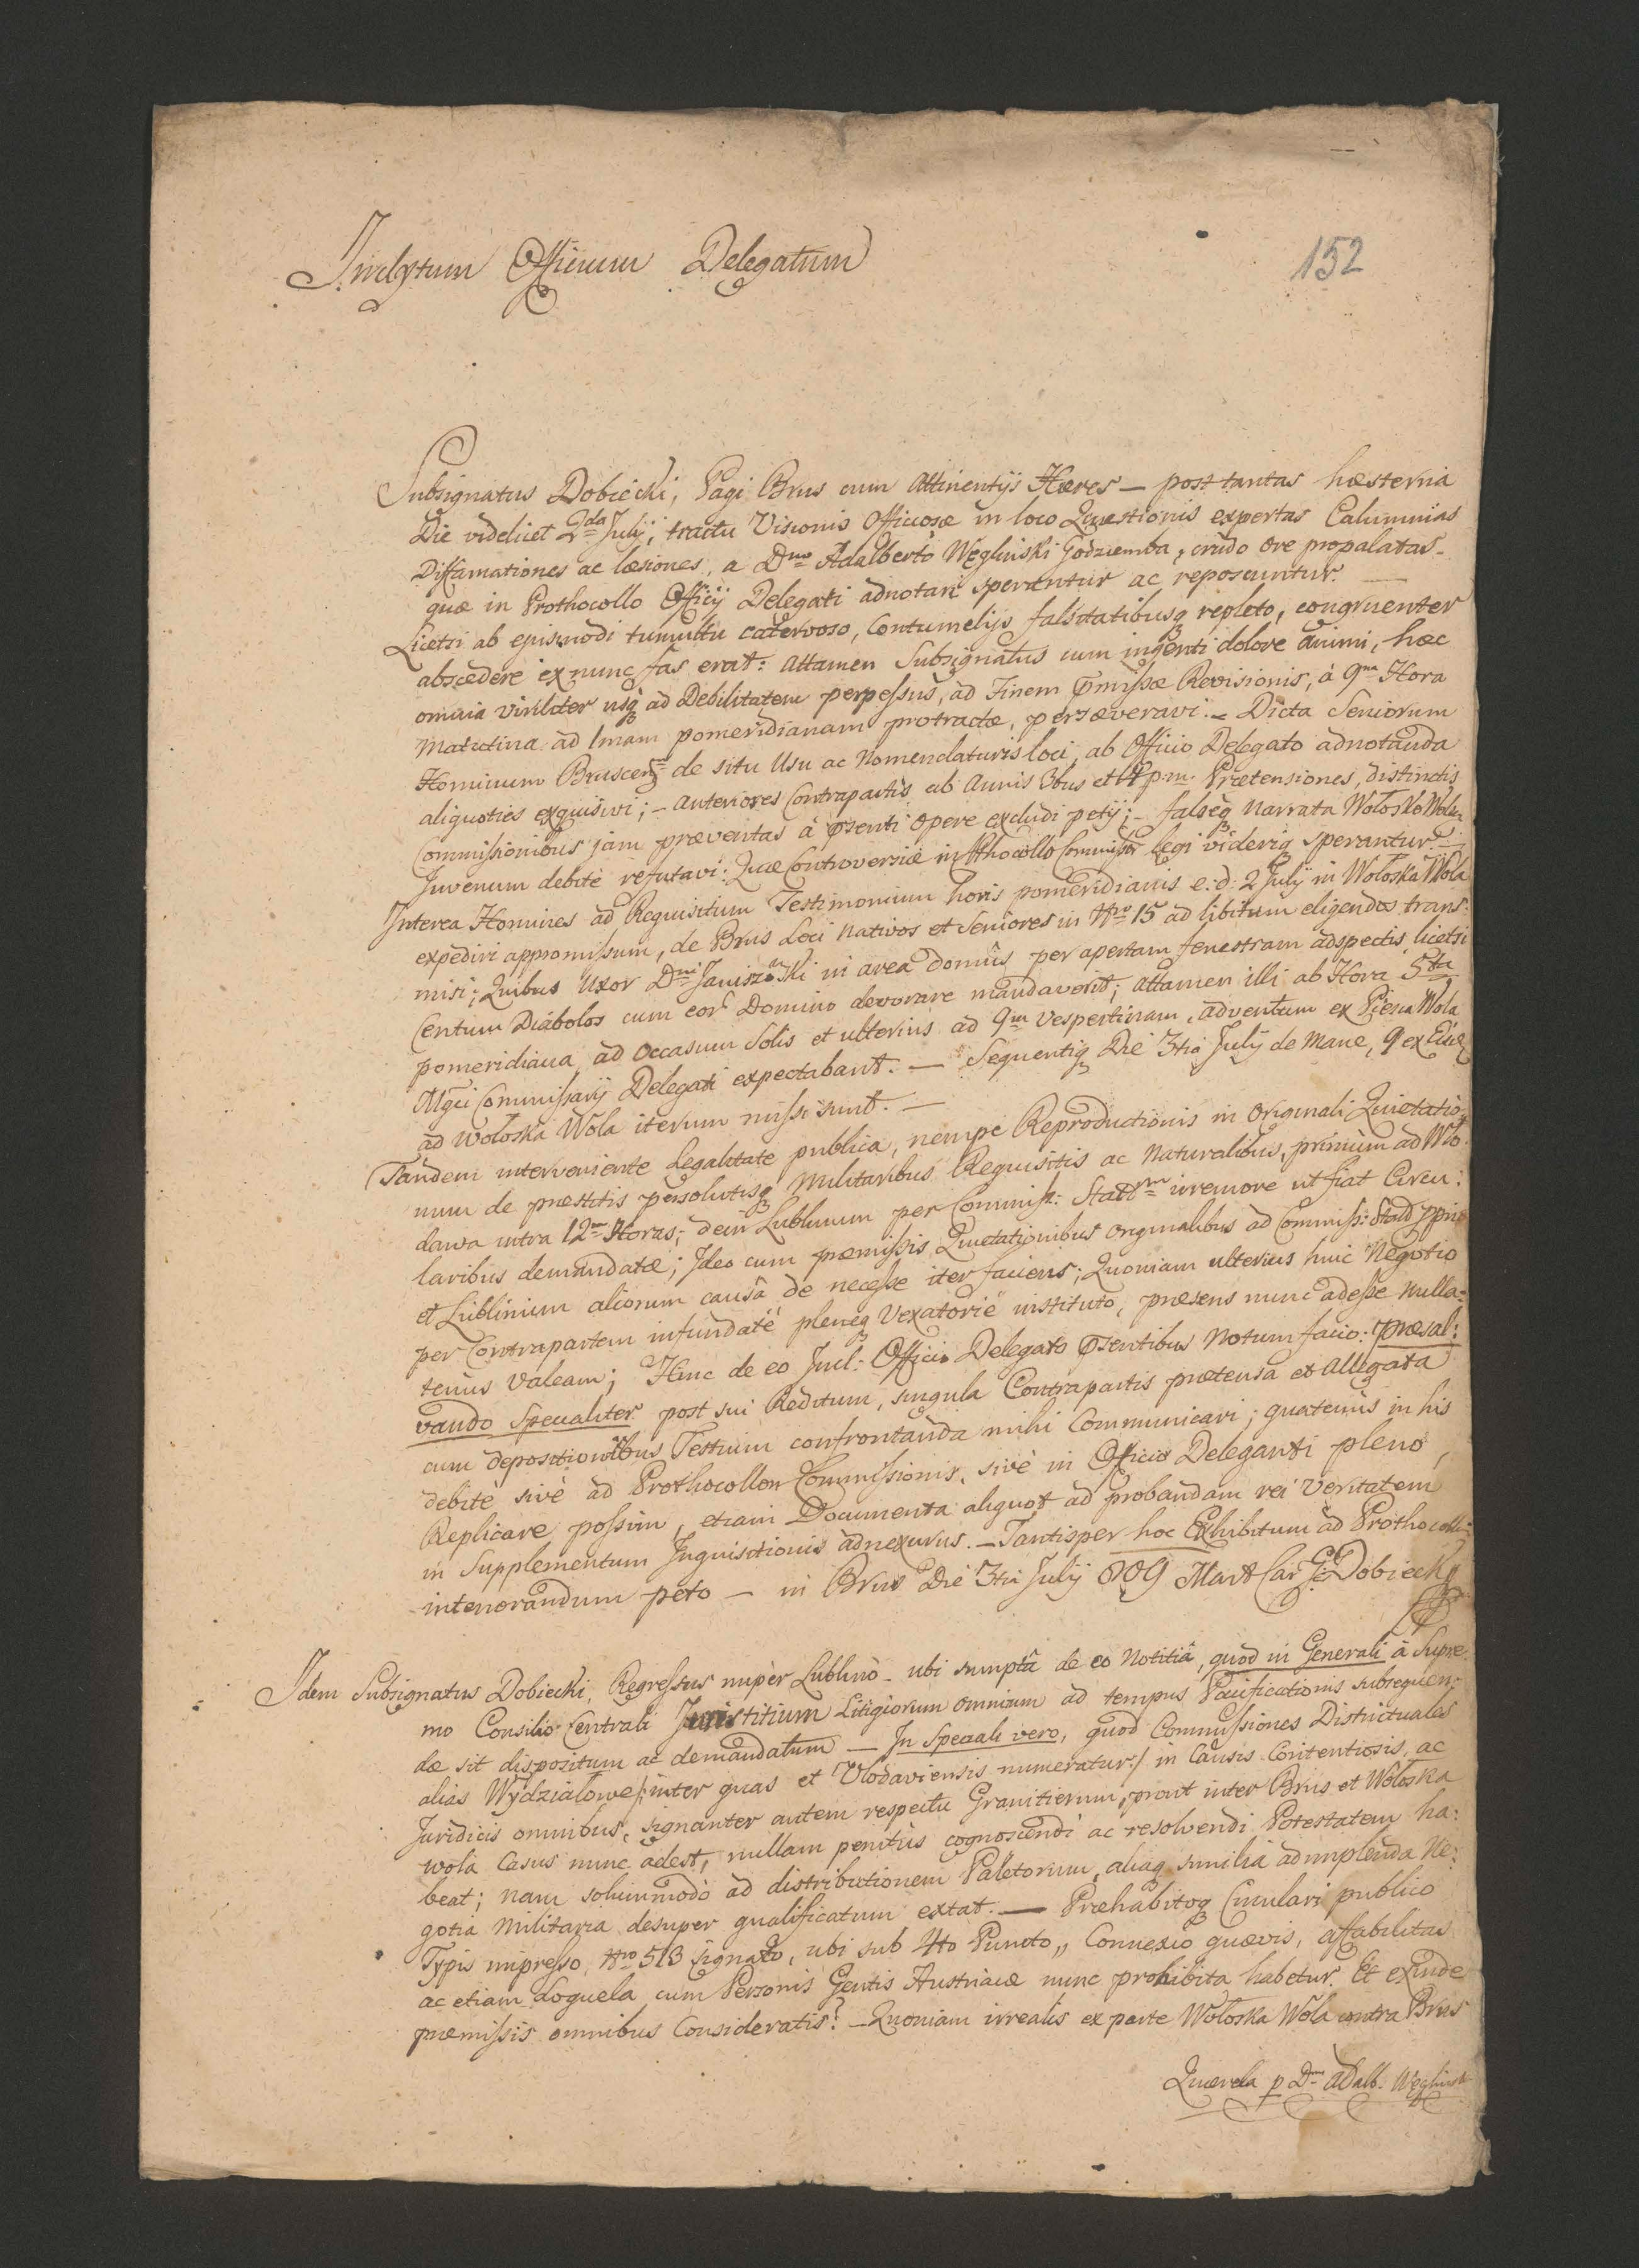 Inclytum Officium Delegatum
152
Subsignatus Dobiecki, Pagi Brus cum Attinentijs Hæres — post tantas hæsterna
Die videlicet 2da July, tractu Visionis Officiosæ in loco Quæstionis expertas Calumnias
Diffamationes ac læsiones, a Dno Adalberto Węgliński Godziemba, crudo ore propalatas -
quæ in Prothocollo Officij Delegati adnotari sperantur ac reposcuntur. —
Licetsi ab ejusmodi tumultu catervoso, Contumelijs falsitatibusq repleto, congruenter
abscedere ex nunc fas erat: attamen Subsignatus cum ingenti dolore animi, hæc
omnia viriliter usq ad Debilitatem perpessus, ad Finem præmissæ Revisionis, à 9na Hora
Matutina ad 1mam pomeridianam protractæ, perseveravi. - Dicta Seniorum
Hominum Bruscens de situ Usu ac Nomenclaturis loci, ab Officio Delegato adnotanda
aliquoties exquisivi; - anteriores Contrapartis ab Annis 3bus et 4 p.m. Prætensiones, distinctis
Commissionibus jam præventas à præsenti opere excludi petij; - falseq narrata Wołosko Wolen
Juvenum debite refutavi: Quæ Controversiæ in Pthocollo Commiss legi videriq sperantur. -
Interea Homines ad Requisitum Testimonium horis pomeridianis e: d: 2 July in Wołoska Wola
expediri appromissum, de Brus Loci Nativos et Seniores in Nro 15 ad libitum eligendos trans:
misi; Quibus Uxor Dni Janiszewski in area domûs per apertam fenestram adspectis, licetsi
Centum Diabolos cum eor Domino devorare mandaverit; attamen illi ab Hora 5ta
pomeridiana, ad Occasum Solis et ulterius ad 9m Vespertinam, adventum ex Wola
Mgci Commissarij Delegati expectabant. — Sequentiq Die 3tia July de Mane, 9 ex
ad Wołoska Wola iterum missi sunt. —
Tandem interveniente Legalitate publica, nempe Reproductionis in Originali Quietatio
num de præstitis persolutisq Militaribus Requisitis ac Naturalibus, primum ad Wło
dawa intra 12m Horas; dein Lublinum per Commiss: irremore ut fiat Circu:
laribus demandatæ; Ideo cum præmissis Quietationibus Originalibus ad Commiss:
et Lublinum aliorum causâ de necesse iter faciens; Quoniam ulterius huic Negotio
per Contrapartem infundatè pleneq Vexatoriè instituto, præsens nunc adesse nulla=
tenus Valeam; Hinc de eo Incl: Officio Delegato præsentibus Notum facio: Præsal:
vando Specialiter post sui Reditum, singula Contrapartis prætensa et Allegata
cum depositionibus Testium confrontanda mihi Communicari; quatenus in his
debite sivè ad Prothocollon Commissionis, sivè in Officio Deleganti pleno,
Replicare possim, etiam Documenta aliquot ad probandam rei Veritatem
in Supplementum Inquisitionis adnexurus. - Tantisper hoc Exhibitum ad Prothocollon
intenorandum peto — in Brus Die 3tia July 809 Mart Car G. Dobiecki
Idem Subsignatus Dobiecki, Regressus nupèr Lublinò - ubi sumptâ de eo Notitiâ, quod in Generali à Supre:
mo Consilio Centrali Juristitium Litigiorum omnium ad tempus Pacificationis subsequen:
dæ sit dispositum ac demandatum — In Speciali vero, quod Commissiones Districtuales
alias Wydziałowe /: inter quas et Vlodaviensis numeratur :/ in Causis Contentiosis, ac
Juridicis omnibus, signanter autem respectu Granitierum, prout inter Brus et Wołoska
Wola Casus nunc adest, nullam penitùs cognoscendi ac resolvendi Potestatem ha:
beat; nam solummodò ad distributionem Paletorum, aliaq similia adimplenda Ne:
gotia Militaria desuper qualificatum extat. — Præhabitoq Circulari publico
Typis impresso, Nro 513 signato, ubi sub 4to Puncto „ Connexio quævis, affabilitas
ac etiam Loquela cum Personis Gentis Austriacæ nunc prohibita habetur. Et exinde
præmissis omnibus Consideratis? - Quoniam irrealis ex parte Wołoska Wola contra Brus
Querela p Dm Adalb. Węglinsk